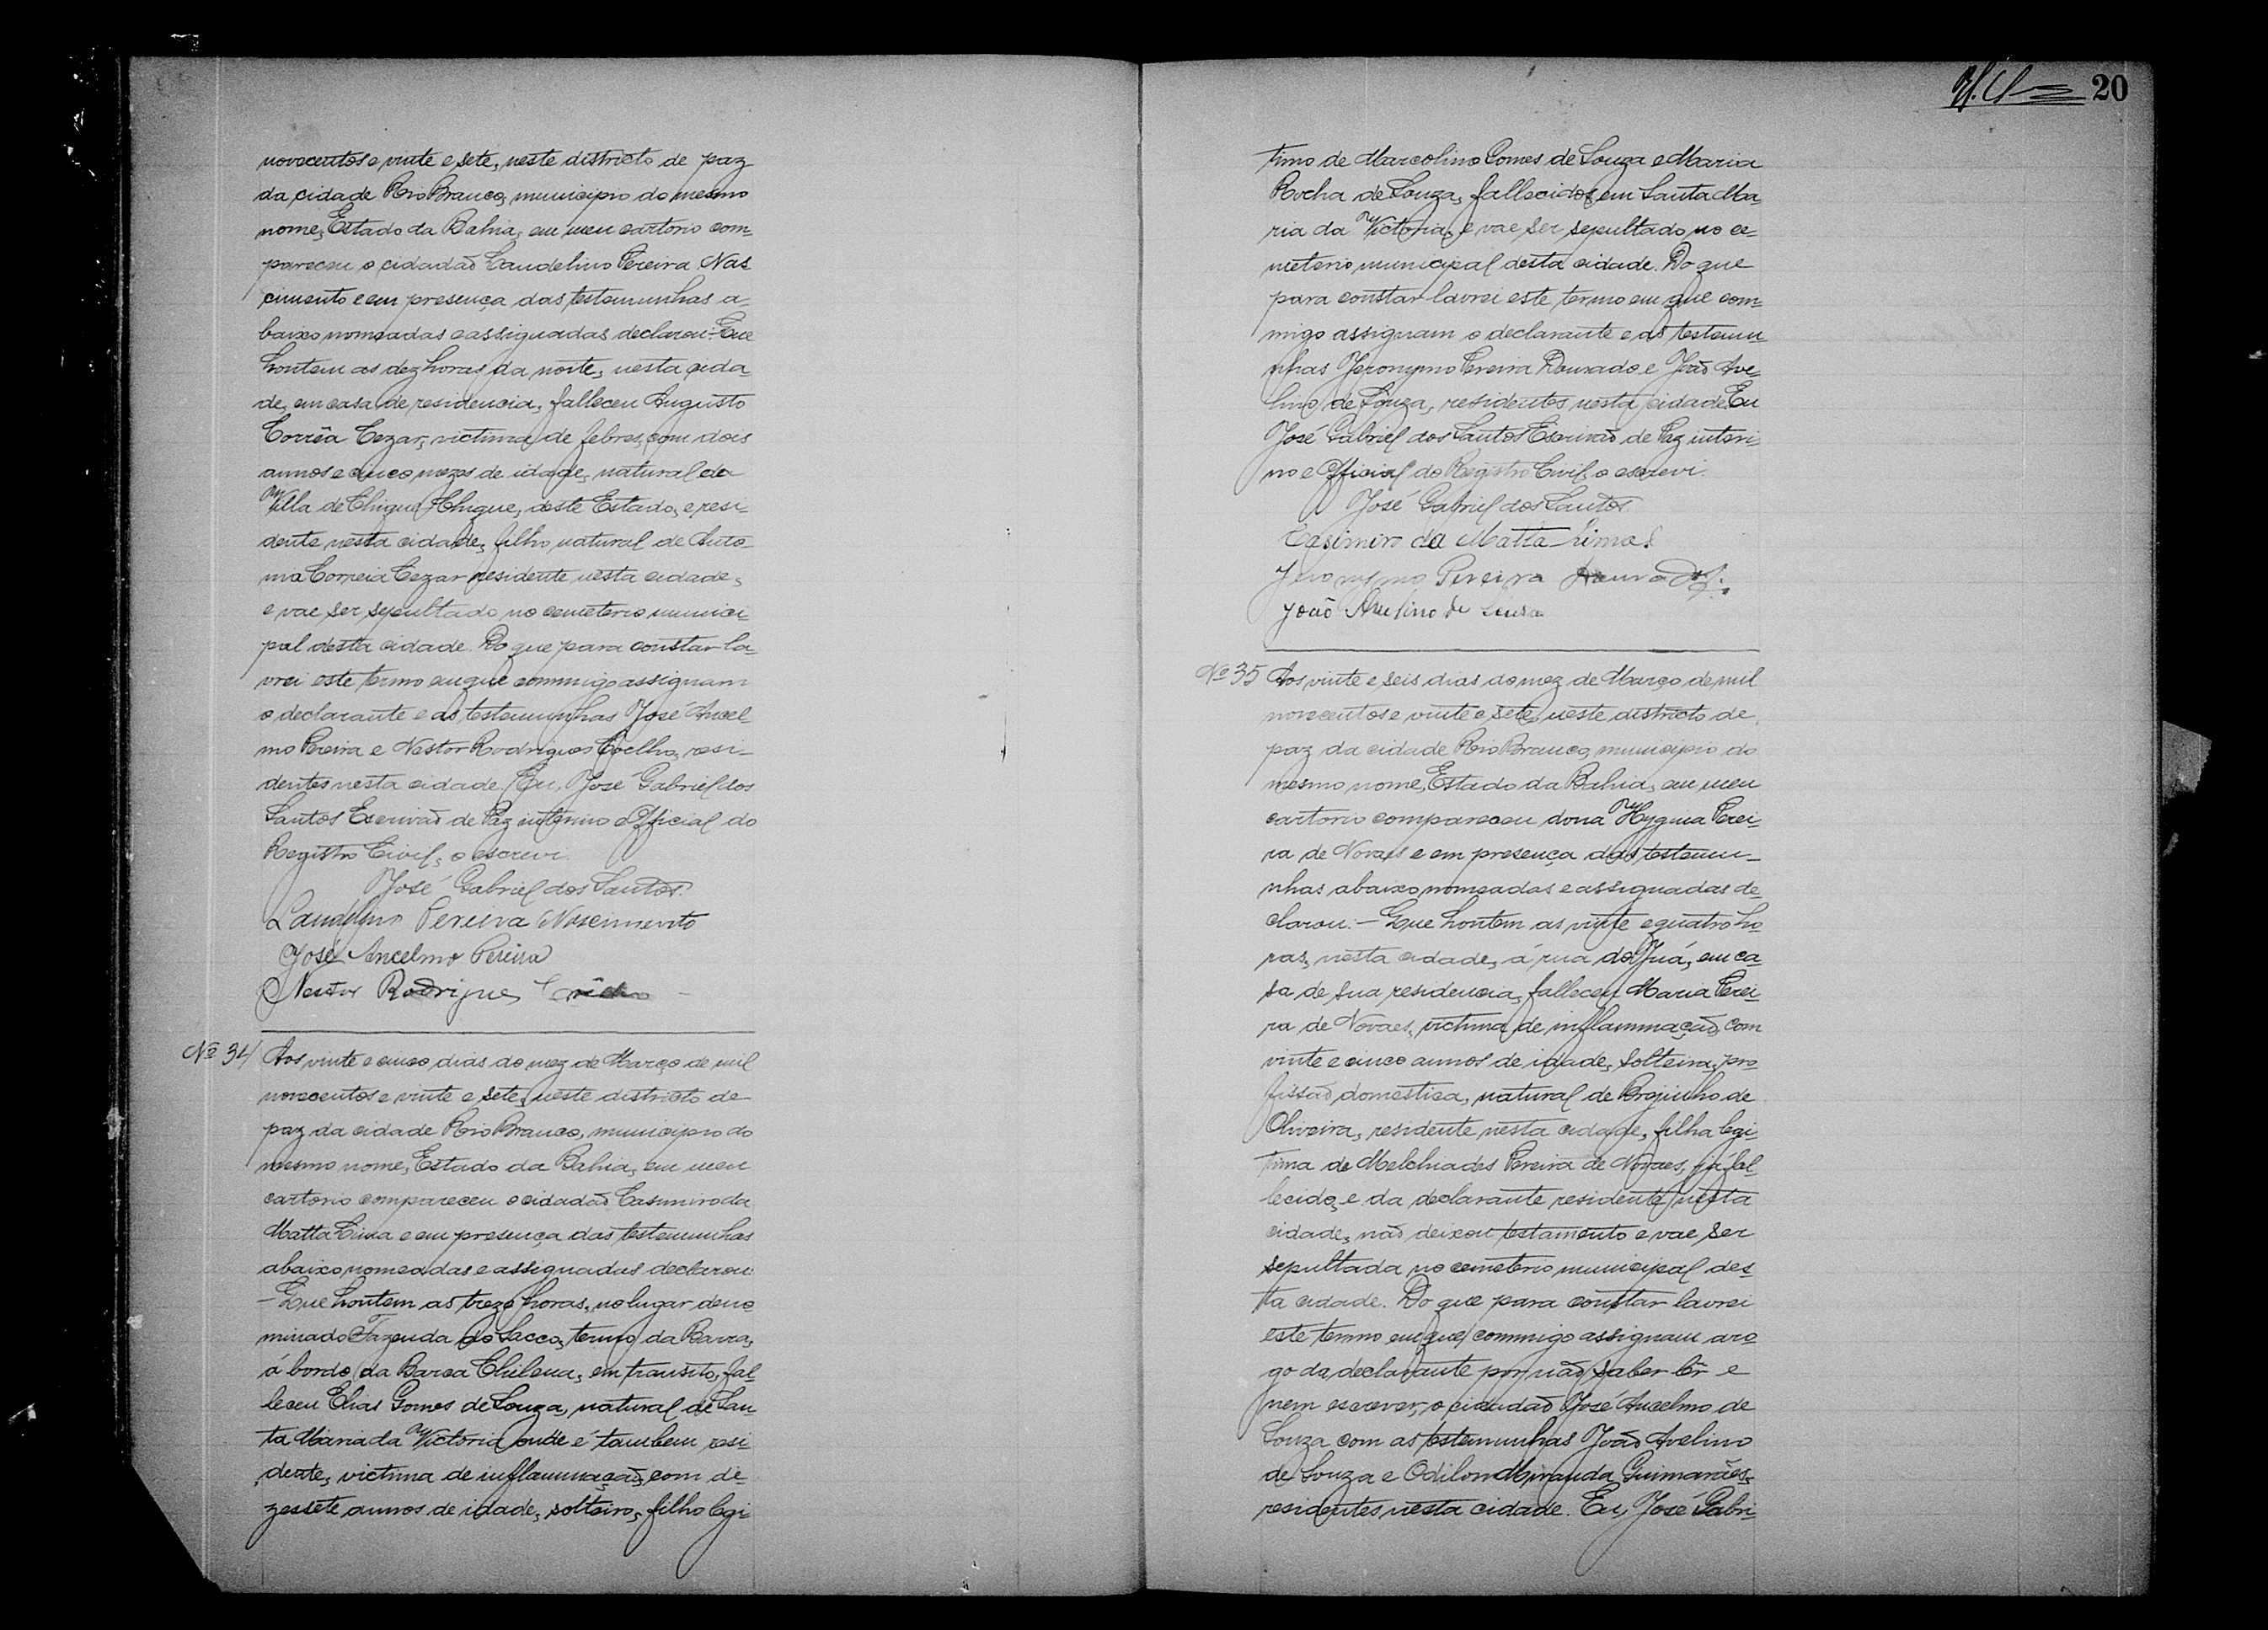 novecentos e vinte e sete, neste districto de paz
da cidade Rio Branco, municipio do mesmo
nome, Estado da Bahia, em meu cartorio com-
pareceu o cidadão Laudelino Pereira Nas
cimento e em presença das testemunhas a-
baixo nomeadas e assignadas declarou:- Que
hontem as dez horas da noite, nesta cida-
de, em casa de residencia, falleceu Augusto
Corrêa Cezar, victima de febres, com dois
annos e cinco mezes de idade, natural da
Villa de Chique-Chique, deste Estado, e resi-
dente nesta cidade, filho natural de Anto-
nia Correia Cezar residente nesta cidade,
e vae ser sepultado no cemeterio munici-
pal desta cidade. Do que para constar la-
vrei este termo em que commigo assignam
o declarante e as testemunhas José Ancel-
mo Pereira e Nestor Rodrigues Coelho, resi-
dentes nesta cidade. Eu, José Gabriel dos
Santos Escrivão de Paz interino e Official do
Registro Civil, o escrevi.
José Gabriel dos Santos.
Laudelino Pereira Nascimento
José Ancelmo Pereira
Nestor Rodrigues Coêlho
Nº 34 Aos vinte e cinco dias do mez de Março de mil
novecentos e vinte e sete, neste districto de
paz da cidade Rio Branco, municipio do
mesmo nome, Estado da Bahia, em meu
cartorio compareceu o cidadão Casimiro da
Matta Lima e em presença das testemunhas
abaixo nomeadas e assignadas declarou:
- Que hontem as treze horas, no lugar deno-
minado Fazenda do Sacco, termo da Barra,
á bordo da Barca Chilena, em transito, fal-
leceu Elias Gomes de Souza, natural de San-
ta Maria da Victoria onde é tambem resi-
dente, victima de inflammação, com de-
zessete annos de idade, solteiro, filho legi-
20
timo de Marcolino Gomes de Souza e Maria
Rocha de Souza, fallecidos em Santa Ma-
ria da Victoria, e vae ser sepultado no ce-
meterio municipal desta cidade. Do que
para constar lavrei este termo em que com-
migo assignam o declarante e as testemu-
nhas Jeronymo Pereira Dourado e João Ave-
lino de Souza, residentes nesta cidade. Eu
José Gabriel dos Santos Escrivão de Paz interi-
no e Official do Registro Civil, o escrevi.
José Gabriel dos Santos
Casimiro da Matta Lima
Jeronymo Pereira Dourado
João Avelino de Souza
Nº 35 Aos vinte e seis dias do mez de Março de mil
novecentos e vinte e sete, neste districto de
paz da cidade Rio Branco, municipio do
mesmo nome, Estado da Bahia, em meu
cartorio compareceu dona Hygina Perei-
ra de Novaes e em presença das testemu-
nhas abaixo nomeadas e assignadas de-
clarou:- Que hontem as vinte e quatro ho-
ras, nesta cidade, á rua do Juá, em ca-
sa de sua residencia, falleceu Maria Perei-
ra de Novaes, victima de inflammação, com
vinte e cinco annos de idade, solteira, pro-
fissão domestica, natural de Brejinho de
Oliveira, residente nesta cidade, filha legi-
tima de Melchiades Pereira de Novaes, já fal-
lecido, e da declarante residente nesta
cidade, não deixou testamento e vae ser
sepultada no cemeterio municipal des-
ta cidade. Do que para constar lavrei
este termo em que commigo assignam a ro-
go da declarante por não saber lêr e
nem escrever, o cidadão José Ancelmo de
Souza com as testemunhas João Avelino
de Souza e Odilon Miranda Guimarães,
residentes nesta cidade. Eu, José Gabri-